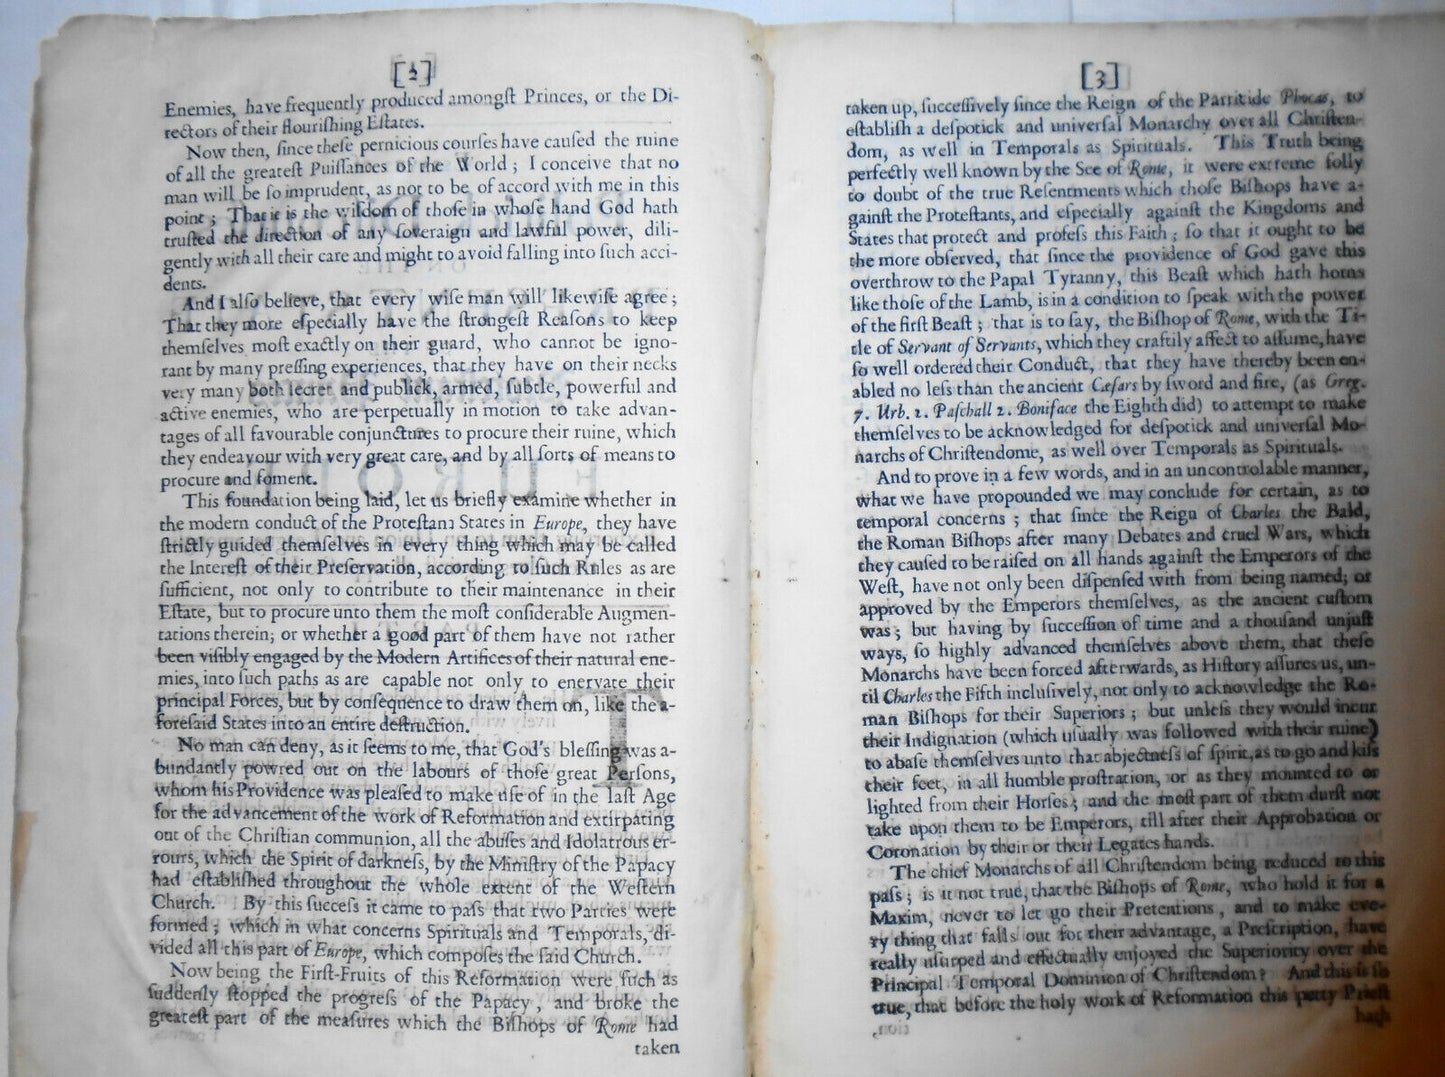 [2]
Enemies, have frequently produced amongſt Princes, or the Di-
rectors of their flouriſhing Eſtates.
Now then, ſince theſe pernicious courſes have cauſed the ruine
of all the greateſt Puiſſances of the World; I conceive that no
man will be ſo imprudent, as not to be of accord with me in this
point; That it is the wiſdom of thoſe in whoſe hand God hath
truſted the direction of any ſoveraign and lawful power, dili-
gently with all their care and might to avoid falling into ſuch acci-
dents.
And I alſo believe, that every wiſe man will likewiſe agree;
That they more eſpecially have the ſtrongeſt Reaſons to keep
themſelves moſt exactly on their guard, who cannot be igno-
rant by many preſſing experiences, that they have on their necks
very many both ſecret and publick, armed, ſubtle, powerful and
active enemies, who are perpetually in motion to take advan-
tages of all favourable conjunctures to procure their ruine, which
they endeavour with very great care, and by all ſorts of means to
procure and foment.
This foundation being laid, let us briefly examine whether in
the modern conduct of the Proteſtant States in Europe, they have
ſtrictly guided themſelves in every thing which may be called
the Intereſt of their Preſervation, according to ſuch Rules as are
ſufficient, not only to contribute to their maintenance in their
Eſtate, but to procure unto them the moſt conſiderable Augmen-
tations therein; or whether a good part of them have not rather
been viſibly engaged by the Modern Artifices of their natural ene-
mies, into ſuch paths as are capable not only to enervate their
principal Forces, but by conſequence to draw them on, like the a-
foreſaid States into an entire deſtruction.
No man can deny, as it ſeems to me, that God's bleſſing was a-
bundantly powred out on the labours of thoſe great Perſons,
whom his Providence was pleaſed to make uſe of in the laſt Age
for the advancement of the work of Reformation and extirpating
out of the Chriſtian communion, all the abuſes and Idolatrous er-
rours, which the Spirit of darkneſs, by the Miniſtry of the Papacy
had eſtabliſhed throughout the whole extent of the Weſtern
Church. By this ſucceſs it came to paſs that two Parties were
formed; which in what concerns Spirituals and Temporals, di-
vided all this part of Europe, which compoſes the ſaid Church.
Now being the Firſt-Fruits of this Reformation were ſuch as
ſuddenly ſtopped the progreſs of the Papacy, and broke the
greateſt part of the meaſures which the Biſhops of Rome had
taken
[3]
taken up, ſucceſſively ſince the Reign of the Parricide Phocas, to
eſtabliſh a deſpotick and univerſal Monarchy over all Chriſten-
dom, as well in Temporals as Spirituals. This Truth being
perfectly well known by the See of Rome, it were extreme folly
to doubt of the true Reſentments which thoſe Biſhops have a-
gainſt the Proteſtants, and eſpecially againſt the Kingdoms and
States that protect and profeſs this Faith; ſo that it ought to be
the more obſerved, that ſince the providence of God gave this
overthrow to the Papal Tyranny, this Beaſt which hath horns
like thoſe of the Lamb, is in a condition to ſpeak with the power
of the firſt Beaſt; that is to ſay, the Biſhop of Rome, with the Ti-
tle of Servant of Servants, which they craftily affect to aſſume, have
ſo well ordered their Conduct, that they have thereby been en-
abled no leſs than the ancient Cæſars by ſword and fire, (as Greg.
7. Urb. 2. Paſchall 2. Boniface the Eighth did) to attempt to make
themſelves to be acknowledged for deſpotick and univerſal Mo-
narchs of Chriſtendome, as well over Temporals as Spirituals.
And to prove in a few words, and in an uncontrolable manner,
what we have propounded we may conclude for certain, as to
temporal concerns; that ſince the Reign of Charles the Bald,
the Roman Biſhops after many Debates and cruel Wars, which
they cauſed to be raiſed on all hands againſt the Emperors of the
Weſt, have not only been diſpenſed with from being named; or
approved by the Emperors themſelves, as the ancient cuſtom
was; but having by ſucceſſion of time and a thouſand unjuſt
ways, ſo highly advanced themſelves above them, that theſe
Monarchs have been forced afterwards, as Hiſtory aſſures us, un-
til Charles the Fifth incluſively, not only to acknowledge the Ro-
man Biſhops for their Superiors; but unleſs they would incur
their Indignation (which uſually was followed with their ruine)
to abaſe themſelves unto that abjectneſs of ſpirit, as to go and kiſs
their feet, in all humble proſtration, or as they mounted to or
lighted from their Horſes; and the moſt part of them durſt not
take upon them to be Emperors, till after their Approbation or
Coronation by their or their Legates hands.
The chief Monarchs of all Chriſtendom being reduced to this
paſs; is it not true, that the Biſhops of Rome, who hold it for a
Maxim, never to let go their Pretentions, and to make eve-
ry thing that falls out for their advantage, a Preſcription, have
really uſurped and effectually enjoyed the Superiority over the
Principal Temporal Dominion of Chriſtendom? And this is ſo
true, that before the holy Work of Reformation this petty Prieſt
hath